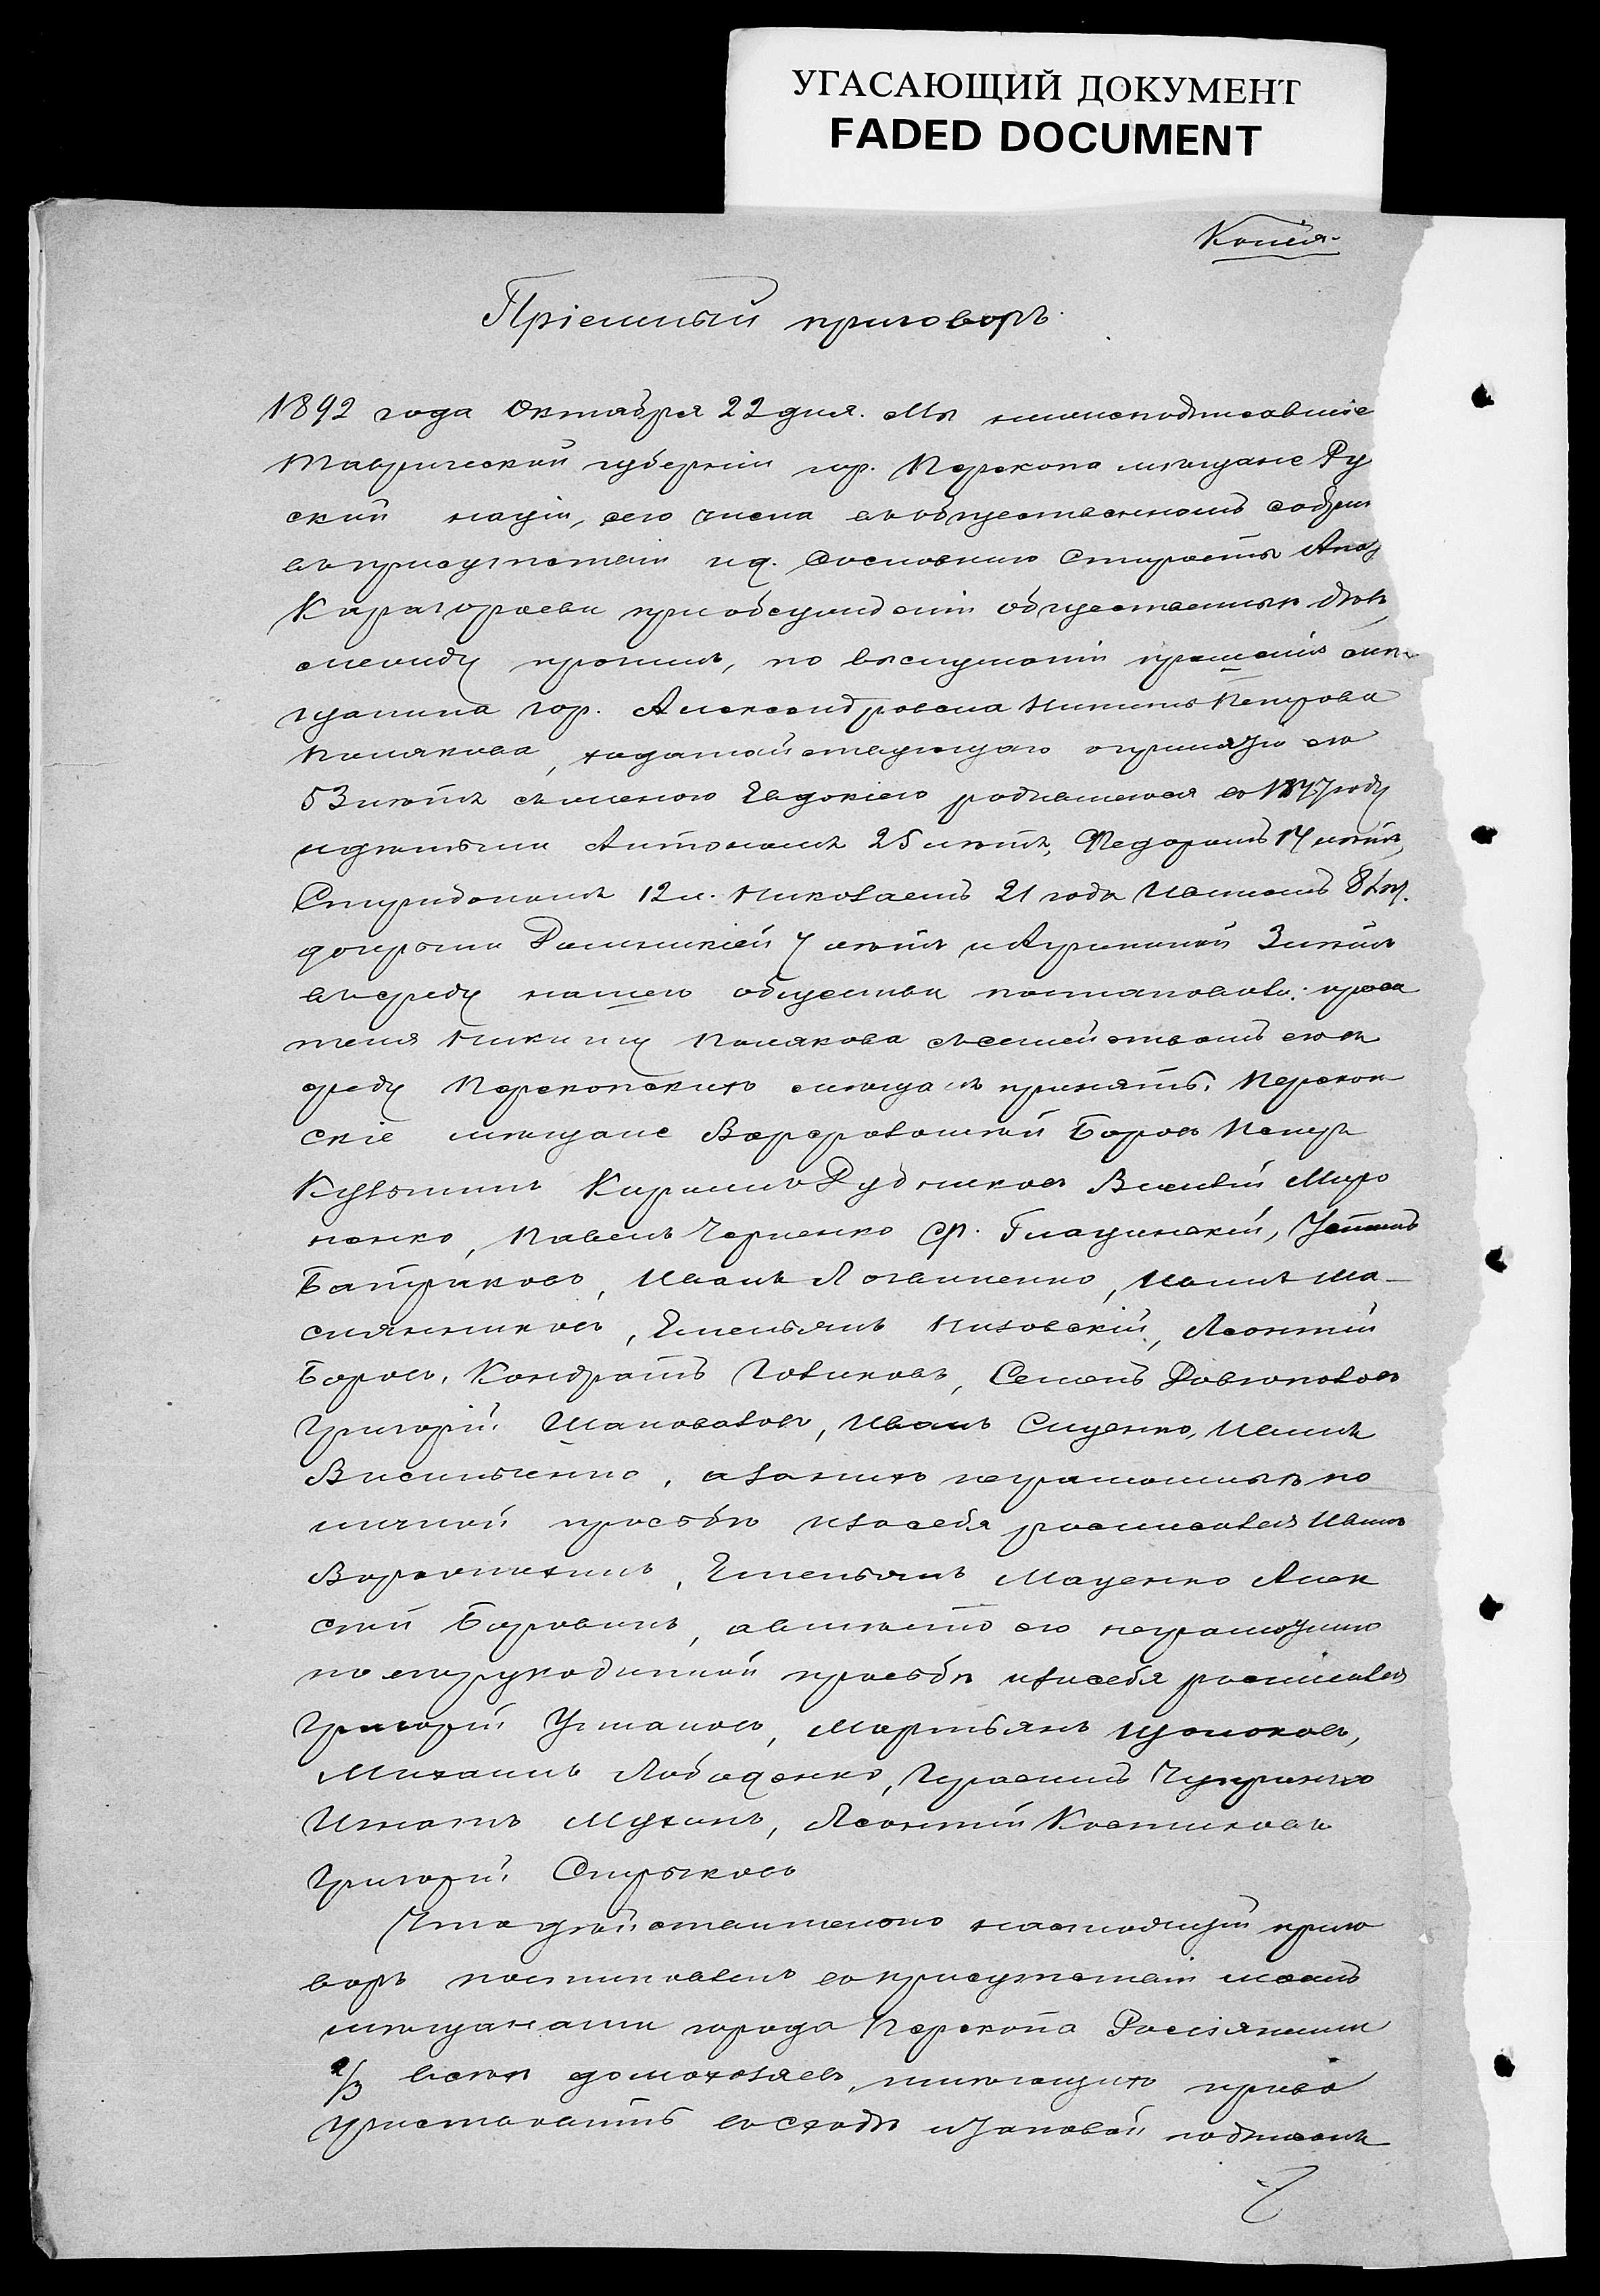 УГАСАЮЩИЙ ДОКУМЕНТ
FADED DOCUMENT
Копія
Пріемный приговоръ.
1892 года Октября 22 дня. Мы нижеподписавшіе
Таврической губерніи гор. Перекопа мѣщане Ру
ской націи, сего числа въ общественномъ собран
въ присутствіи и д. Сословнаго Старосты
Карагораева при обсужденіи общественныхъ дѣлъ,
между прочимъ, по выслушаніи прошенія мѣ-
щанина гор. Александровска Никиты Петрова
Полякова, ходатайствующаго о принятіи его
53 лѣтъ съ женою Евдокіею родившеюся въ 1847 году
и дѣтьми Антономъ 25 лѣтъ, Федоромъ 14 лѣтъ,
Спиридономъ 12 л. Николаемъ 21 года Иваномъ 8 лѣт.
дочерьми 7 лѣтъ и Агрипиной 3 лѣтъ
въ среду нашего общества постановили: проси
теля Никиту Полякова съ семействомъ его въ
среду Перекопскихъ мѣщанъ принять. Перекоп
скіе мѣщане Боровъ Петръ
Кузьминъ Кирилъ Рудниковъ Василій Миро
ненко, Павелъ Черненко Ф. Глущинскій,
Батраковъ, Иванъ Логвиненко, Иванъ Ма-
слянниковъ, Емельянъ Низовскій, Леонтій
Боровъ, Кондратъ Новиковъ, Семенъ
Григорій Шаповаловъ, Иванъ Сиденко, Иванъ
Васильченко, а за нихъ неграмотныхъ по
личной просьбѣ и за себя росписался Иванъ
Ворошихинъ, Емельянъ Маценко Алек
сѣй Боровинъ, а вмѣсто его неграмотнаго
по его рукоданной просьбѣ и за себя росписался
Григорій Устиновъ, Мартьянъ
Михаилъ Лободенко, Герасимъ Чуприненко
Игнатъ Мухинъ, Леонтій Костиковъ
Григорій Стрыковъ
Что дѣйствительно настоящій приго
воръ постановленъ въ присутствіи моемъ
мѣщанами города Перекопа Россіянами
2/3 всѣхъ домохозяевъ, имѣющихъ право
участвовать въ сходѣ и таковой подписанъ